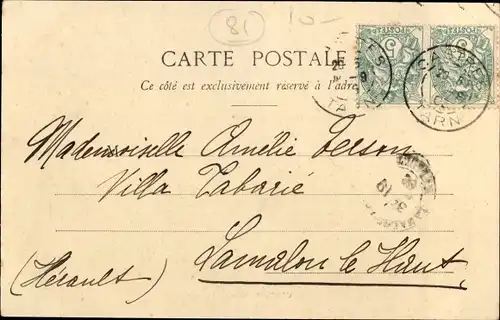 81
10-
CARTE POSTALE
Ce côté est exclusivement réservé à l'adre
POSTES
5
5
CASTRES
TARN
TARN
Mademoiselle Amélie Terson
Villa Tabarié
Lamalou le Haut
(Hérault)